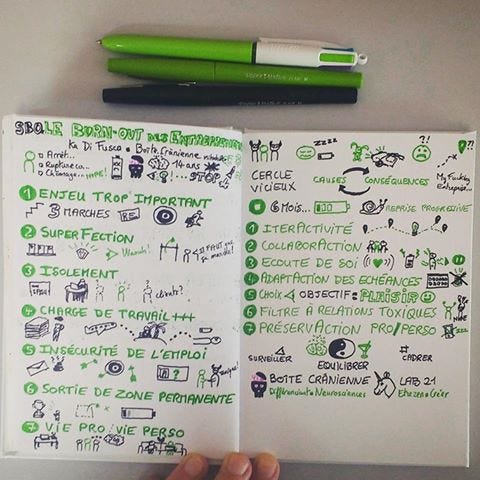 SBO.LE BURN-OUT DES ENTREPRENEURS
Ka Di Fusco • Boîte Crânienne
Arrêt...
Rupture co...
Chômage...
14 ans
STOP
1 ENJEU TROP IMPORTANT
3 MARCHES
RE
2 SUPERFECTION
IL FAUT QUE ça marche!
3 ISOLEMENT
clients?
4 CHARGE DE TRAVAIL +++
5 INSÉCURITÉ DE L'EMPLOI
?
6 SORTIE DE ZONE PERMANENTE
7 VIE PRO : VIE PERSO
zzz
?
?!
?!
CERCLE VICIEUX
CAUSES
CONSÉQUENCES
My Fucking Entreprise...
6 MOIS...
REPRISE PROGRESSIVE
1 ITERACTIVITÉ
2 COLLABORACTION
3 ECOUTE DE SOI
4 ADAPTACTION DES ECHÉANCES
5 CHOIX OBJECTIF: PLAISIR
6 FILTRE A RELATIONS TOXIQUES
7 PRÉSERVACTION PRO/PERSO
SURVEILLER
EQUILIBRER
# CADRER
BOITE CRÂNIENNE
Différenciant & Neurosciences
LAB 21